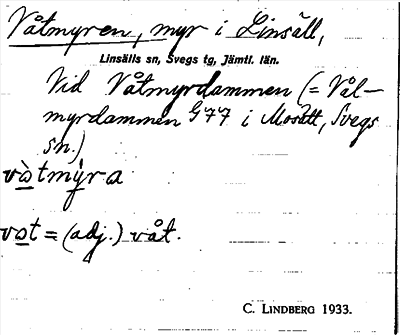 Våtmyren, myr i Linsäll,
Linsälls sn, Svegs tg, Jämtl. län.
Vid Våtmyrdammen (= Vål-
myrdammen G77 i Mosätt, Svegs
sn.)
vòtmýra
vot = (adj.) våt.
C. LINDBERG 1933.